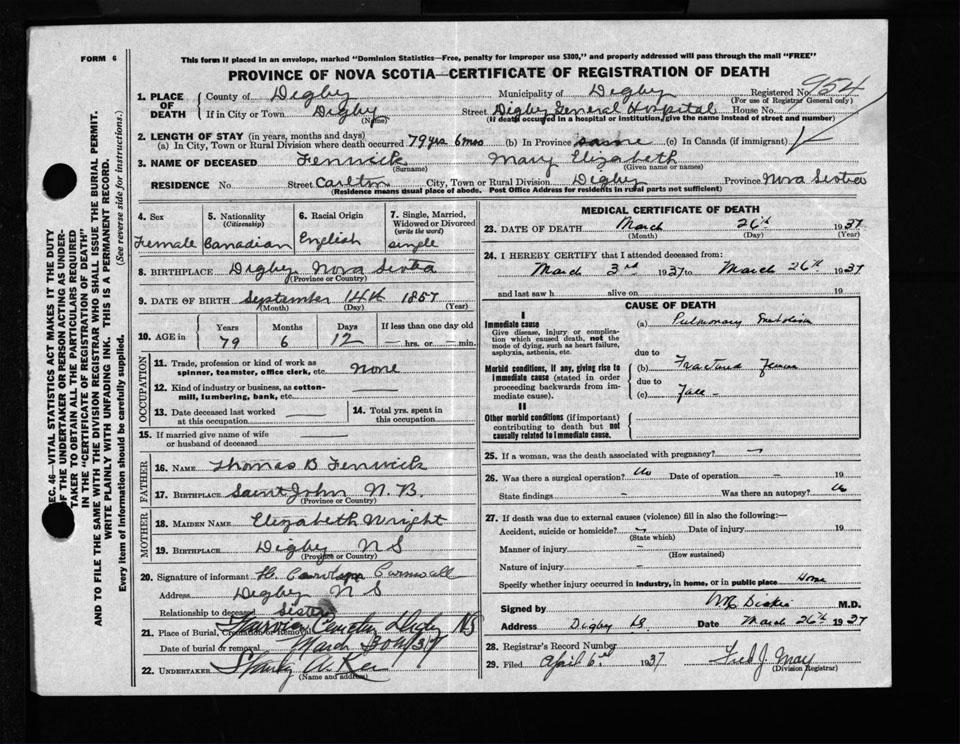 FORM 6
This form if placed in an envelope, marked "Dominion Statistics—Free, penalty for improper use $300," and properly addressed will pass through the mail "FREE"
PROVINCE OF NOVA SCOTIA—CERTIFICATE OF REGISTRATION OF DEATH
SEC. 46—VITAL STATISTICS ACT MAKES IT THE DUTY
OF THE UNDERTAKER OR PERSON ACTING AS UNDER-
TAKER TO OBTAIN ALL THE PARTICULARS REQUIRED
IN THE "CERTIFICATE OF REGISTRATION OF DEATH"
AND TO FILE THE SAME WITH THE DIVISION REGISTRAR WHO SHALL ISSUE THE BURIAL PERMIT.
WRITE PLAINLY WITH UNFADING INK. THIS IS A PERMANENT RECORD.
Every item of information should be carefully supplied. (See reverse side for instructions.)
1. PLACE OF DEATH County of Digby Municipality of Digby Registered No. 954
(For use of Registrar General only)
If in City or Town Digby (Name) Street Digby General Hospital House No.
(If death occurred in a hospital or institution, give the name instead of street and number)
2. LENGTH OF STAY (in years, months and days)
(a) In City, Town or Rural Division where death occurred 79 yrs 6 mos (b) In Province same (c) In Canada (if immigrant)
3. NAME OF DECEASED Fenwick Mary Elizabeth
(Surname) (Given name or names)
RESIDENCE No. Street Carlton City, Town or Rural Division Digby Province Nova Scotia
(Residence means usual place of abode. Post Office Address for residents in rural parts not sufficient)
4. Sex Female
5. Nationality (Citizenship) Canadian
6. Racial Origin English
7. Single, Married, Widowed or Divorced (write the word) single
8. BIRTHPLACE Digby Nova Scotia
(Province or Country)
9. DATE OF BIRTH September 14th 1857
(Month) (Day) (Year)
10. AGE in Years 79 Months 6 Days 12 If less than one day old — hrs. or — min.
OCCUPATION
11. Trade, profession or kind of work as spinner, teamster, office clerk, etc. None
12. Kind of industry or business, as cotton-mill, lumbering, bank, etc.
13. Date deceased last worked at this occupation
14. Total yrs. spent in this occupation
15. If married give name of wife or husband of deceased
FATHER
16. NAME Thomas B. Fenwick
17. BIRTHPLACE Saint John N. B.
(Province or Country)
MOTHER
18. MAIDEN NAME Elizabeth Wright
19. BIRTHPLACE Digby NS
(Province or Country)
20. Signature of informant H. Cornwall
Address Digby NS
Relationship to deceased Sister
21. Place of Burial, Cremation or Removal Cemetery Digby NS
Date of burial or removal March
22. UNDERTAKER
(Name and address)
MEDICAL CERTIFICATE OF DEATH
23. DATE OF DEATH March 26th 1937
(Month) (Day) (Year)
24. I HEREBY CERTIFY that I attended deceased from:
March 3rd 1937 to March 26th 1937
and last saw h alive on 19
CAUSE OF DEATH
I
Immediate cause
Give disease, injury or complication which caused death, not the mode of dying, such as heart failure, asphyxia, asthenia, etc.
(a) Pulmonary Embolism
due to
Morbid conditions, if any, giving rise to immediate cause (stated in order proceeding backwards from immediate cause).
(b) Fractured Femur
due to
(c) Fall -
II
Other morbid conditions (if important) contributing to death but not causally related to immediate cause.
25. If a woman, was the death associated with pregnancy? —
26. Was there a surgical operation? No Date of operation - 19
State findings - Was there an autopsy? No
27. If death was due to external causes (violence) fill in also the following:—
Accident, suicide or homicide? - Date of injury 19
(State which)
Manner of injury -
(How sustained)
Nature of injury -
Specify whether injury occurred in industry, in home, or in public place Home
Signed by M.D.
Address Digby NS. Date March 26th 1937
28. Registrar's Record Number
29. Filed April 6th 1937 Fred J. May
(Division Registrar)